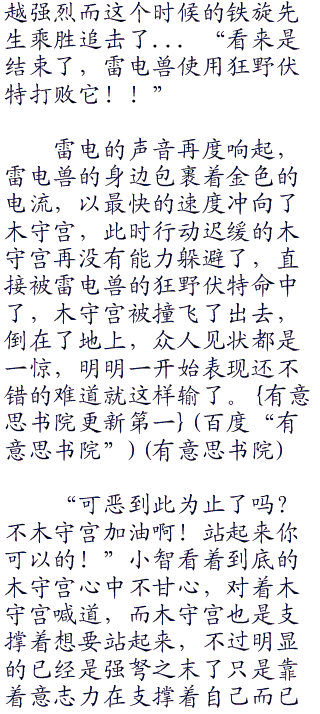 越强烈而这个时候的铁旋先
生乘胜追击了... “看来是
结束了，雷电兽使用狂野伏
特打败它！！”
雷电的声音再度响起，
雷电兽的身边包裹着金色的
电流，以最快的速度冲向了
木守宫，此时行动迟缓的木
守宫再没有能力躲避了，直
接被雷电兽的狂野伏特命中
了，木守宫被撞飞了出去，
倒在了地上，众人见状都是
一惊，明明一开始表现还不
错的难道就这样输了。{有意
思书院更新第一}(百度“有
意思书院”)(有意思书院)
“可恶到此为止了吗？
不木守宫加油啊！站起来你
可以的！”小智看着到底的
木守宫心中不甘心，对着木
守宫喊道，而木守宫也是支
撑着想要站起来，不过明显
的已经是强弩之末了只是靠
着意志力在支撑着自己而已